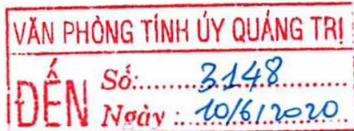 VĂN PHÒNG TỈNH ỦY QUẢNG TRỊ
ĐẾN Số:.......3148.......
Ngày :..10/6/2020..